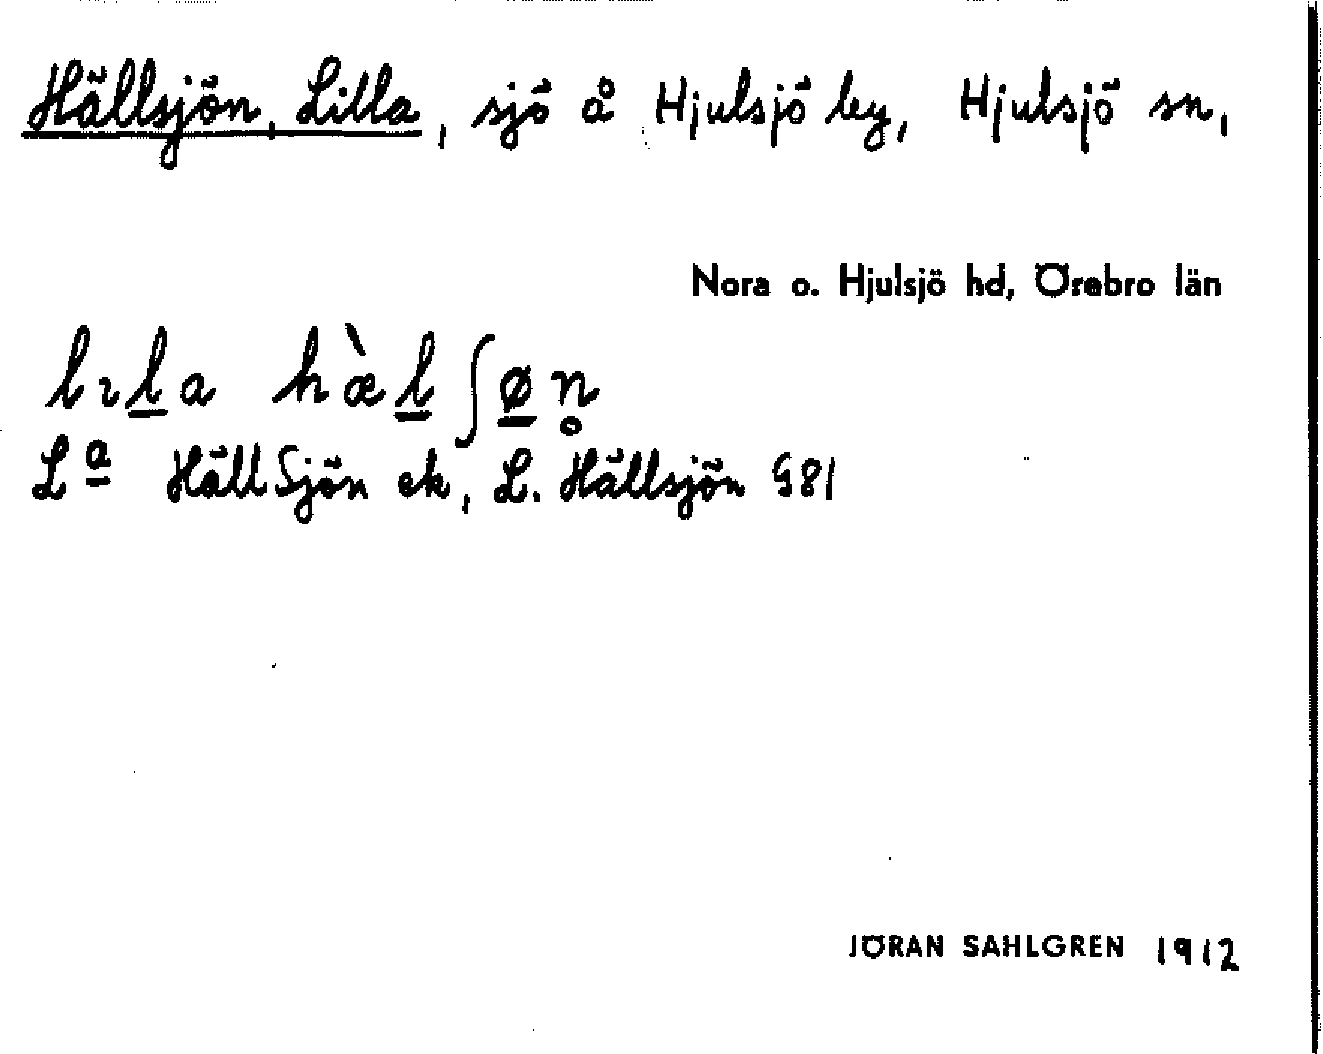 Hällsjön, Lilla, sjö å Hjulsjö by, Hjulsjö sn,
Nora o. Hjulsjö hd, Örebro län
lɩl̲a hæ̀l̲ʃø̲n̥
Lª HällSjön ek, L. Hällsjön G81
JÖRAN SAHLGREN 1912